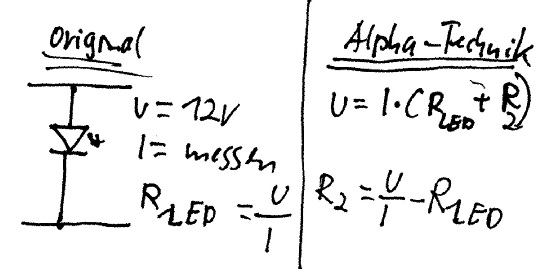 Original
U = 12V
I = messen
R LED = U/I
Alpha-Technik
U = I · (R LED + R2)
R2 = U/I - R LED